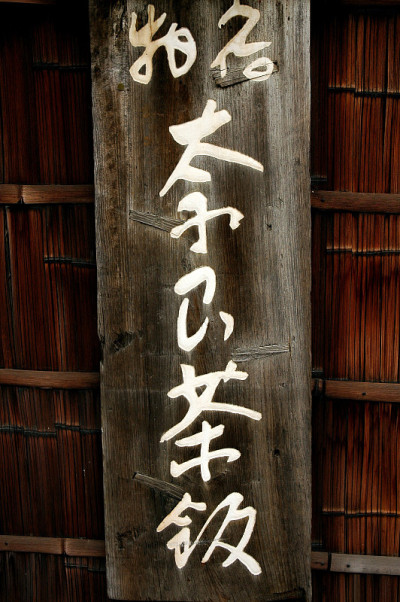 名物
奈良茶飯